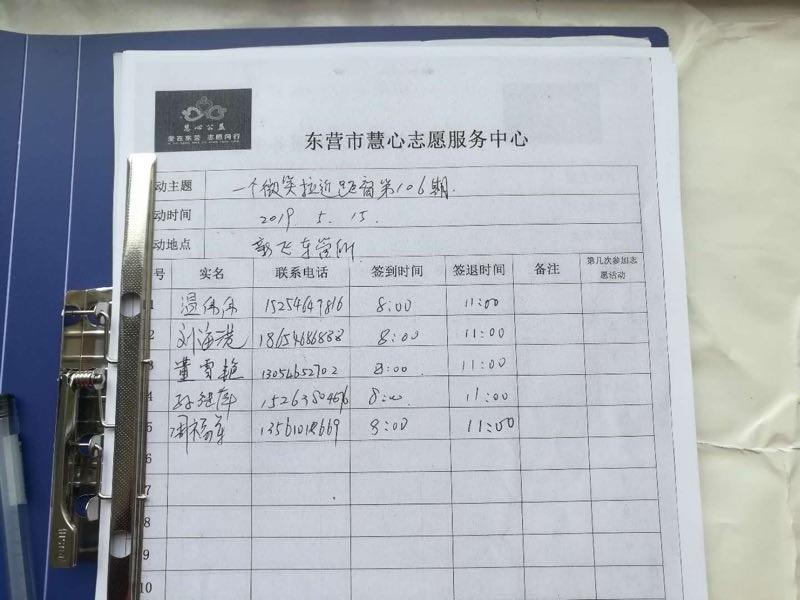 慧心公益
爱在东营 志愿同行
东营市慧心志愿服务中心
动主题 一个微笑拉近距离第106期.
动时间 2019. 5. 15.
动地点
号 实名 联系电话 签到时间 签退时间 备注 第几次参加志愿活动
1 温伟伟 15254647816 8:00 11:00
2 刘海港 18654686888 8:00 11:00
3 董雪艳 13054652702 8:00 11:00
4 8:00 11:00
5 周福军 8:00 11:00
6
7
8
9
10